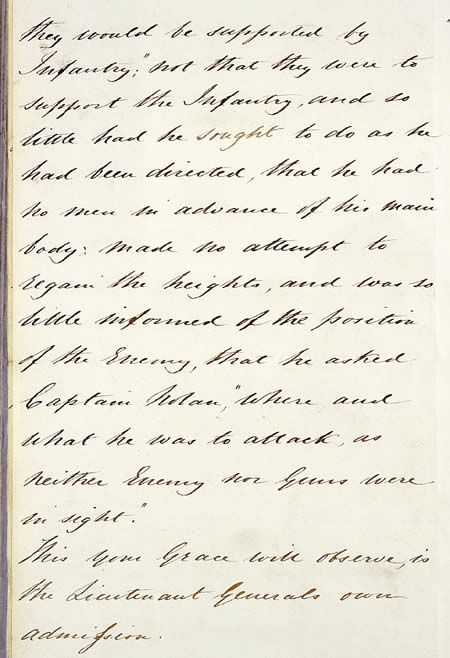 they would be supported by
Infantry;" not that they were to
support the Infantry, and so
little had he sought to do as he
had been directed, that he had
no men in advance of his main
body: made no attempt to
regain the heights, and was so
little informed of the position
of the Enemy, that he asked
Captain Nolan, "where and
what he was to attack, as
neither Enemy nor Guns were
in sight".
This your Grace will observe, is
the Lieutenant Generals own
admission.